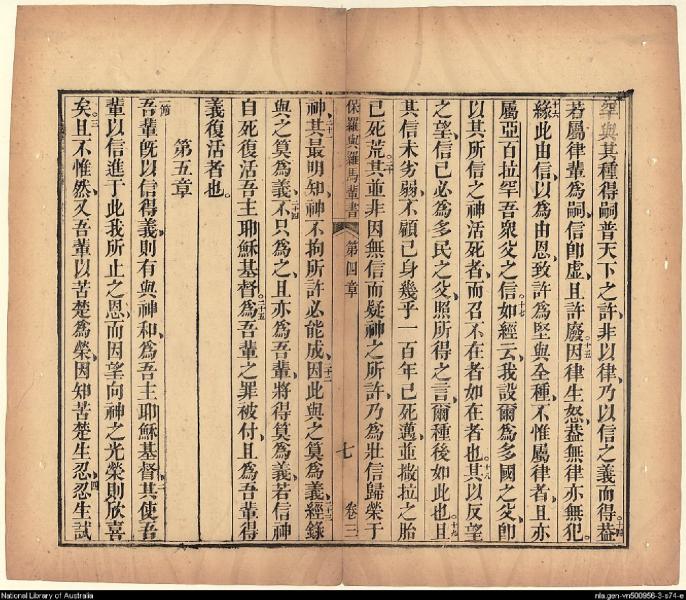 罕與其種得嗣普天下之許、非以律、乃以信之義而得。十四葢
若屬律輩為嗣、信卽虛、且許廢。十五因律生怒、葢無律亦無犯。
十六緣此由信、以為由恩、致許為堅與全種、不惟屬律者、且亦
屬亞百拉罕吾衆父之信。十七如經云、我設爾為多國之父、卽
以其所信之神活死者、而召不在者如在者也。十八其以反望
之望、信已必為多民之父、照所得之言、爾種後如此也。十九且
其信未劣弱、不顧己身幾乎一百年已死邁、並撒拉之胎
已死荒。二十其並非因無信而疑神之所許、乃為壯信歸榮于
保羅與羅馬輩書 第四章 七 卷三
神。二十一其最明知、神不拘所許必能成。二十二因此與之算為義。二十三經錄
與之算為義、不只為之、二十四且亦為吾輩、將得算為義、若信神
自死復活吾主耶穌基督。二十五為吾輩之罪被付、且為吾輩得
義復活者也。
第五章
一節吾輩旣以信得義、則有與神和、為吾主耶穌基督、二其使吾
輩以信進于此我所止之恩、而因望向神之光榮、則欣喜
矣。三且不惟然、又吾輩以苦楚為榮、因知苦楚生忍、四忍生試
National Library of Australia
nla.gen-vn500956-3-s74-e